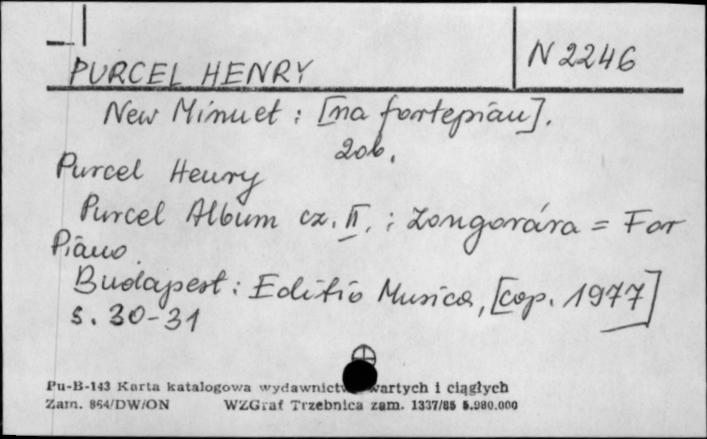 PURCEL HENRY
N 2246
New Minuet : [na fortepian].
Zob.
Purcel Henry
Purcel Album cz. II. : Zongorára = For
Piano.
Budapest : Editio Musica, [cop. 1977]
s. 30-31
Pu-B-143 Karta katalogowa wydawnictw zwartych i ciągłych
Zam. 864/DW/ON WZGraf Trzebnica zam. 1337/85 5.980.000